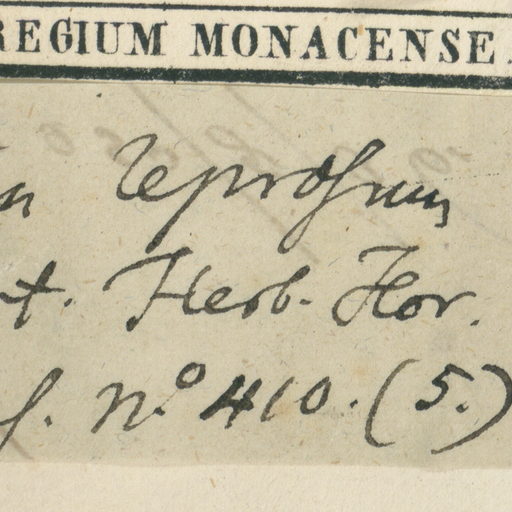 REGIUM MONACENSE.
leprosum
t. Herb. Hor.
f. No. 410. (5.)